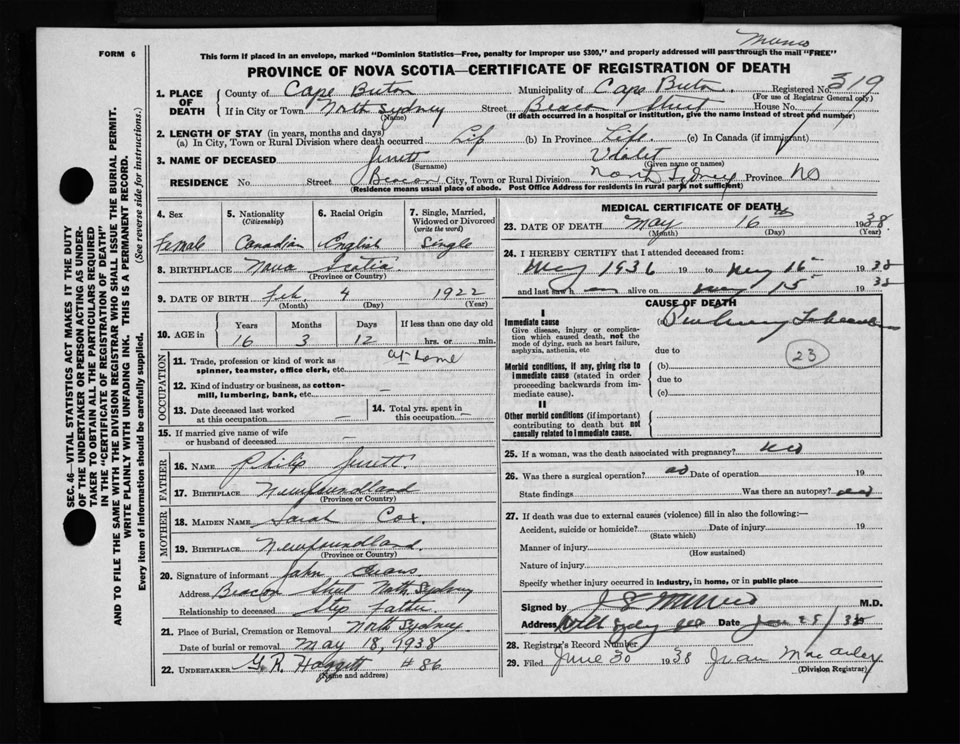 FORM 6
This form if placed in an envelope, marked "Dominion Statistics—Free, penalty for improper use $300," and properly addressed will pass through the mail "FREE"
PROVINCE OF NOVA SCOTIA—CERTIFICATE OF REGISTRATION OF DEATH
1. PLACE OF DEATH
County of Cape Breton Municipality of Cape Breton Registered No. 319
(For use of Registrar General only)
If in City or Town North Sydney Street Beacon Street House No.
(Name) (If death occurred in a hospital or institution, give the name instead of street and number)
2. LENGTH OF STAY (in years, months and days)
(a) In City, Town or Rural Division where death occurred Life (b) In Province Life (c) In Canada (if immigrant)
3. NAME OF DECEASED Violet
(Surname) (Given name or names)
RESIDENCE No Street Beacon City, Town or Rural Division North Sydney Province NS
(Residence means usual place of abode. Post Office Address for residents in rural parts not sufficient)
4. Sex
Female
5. Nationality
(Citizenship)
Canadian
6. Racial Origin
English
7. Single, Married, Widowed or Divorced
(write the word)
Single
8. BIRTHPLACE Nova Scotia
(Province or Country)
9. DATE OF BIRTH Feb. 4 1922
(Month) (Day) (Year)
10. AGE in
Years Months Days If less than one day old
16 3 12 hrs. or min.
OCCUPATION
11. Trade, profession or kind of work as spinner, teamster, office clerk, etc. at Home
12. Kind of industry or business, as cotton-mill, lumbering, bank, etc. —
13. Date deceased last worked at this occupation —
14. Total yrs. spent in this occupation —
15. If married give name of wife or husband of deceased —
FATHER
16. NAME Philip
17. BIRTHPLACE Newfoundland
(Province or Country)
MOTHER
18. MAIDEN NAME Sarah Cox.
19. BIRTHPLACE Newfoundland.
(Province or Country)
20. Signature of informant John Evans
Address Beacon Street North Sydney
Relationship to deceased Step Father
21. Place of Burial, Cremation or Removal North Sydney.
Date of burial or removal May 18, 1938
22. UNDERTAKER G. R. # 86
(Name and address)
MEDICAL CERTIFICATE OF DEATH
23. DATE OF DEATH May 16th 1938
(Month) (Day) (Year)
24. I HEREBY CERTIFY that I attended deceased from:
May 1936 19 to May 15 1938
and last saw h alive on May 15 1938
CAUSE OF DEATH
I
Immediate cause
Give disease, injury or complication which caused death, not the mode of dying, such as heart failure, asphyxia, asthenia, etc
(a)
due to
23
Morbid conditions, if any, giving rise to immediate cause (stated in order proceeding backwards from immediate cause).
(b)
due to
(c)
II
Other morbid conditions (if important) contributing to death but not causally related to immediate cause.
25. If a woman, was the death associated with pregnancy? no
26. Was there a surgical operation? no Date of operation 19
State findings Was there an autopsy?
27. If death was due to external causes (violence) fill in also the following:—
Accident, suicide or homicide? Date of injury 19
(State which)
Manner of injury
(How sustained)
Nature of injury
Specify whether injury occurred in industry, in home, or in public place
Signed by M.D.
Address Date
28. Registrar's Record Number
29. Filed June 30 1938
(Division Registrar)
SEC. 46—VITAL STATISTICS ACT MAKES IT THE DUTY OF THE UNDERTAKER OR PERSON ACTING AS UNDERTAKER TO OBTAIN ALL THE PARTICULARS REQUIRED IN THE "CERTIFICATE OF REGISTRATION OF DEATH"
AND TO FILE THE SAME WITH THE DIVISION REGISTRAR WHO SHALL ISSUE THE BURIAL PERMIT.
WRITE PLAINLY WITH UNFADING INK. THIS IS A PERMANENT RECORD.
Every item of information should be carefully supplied. (See reverse side for instructions.)